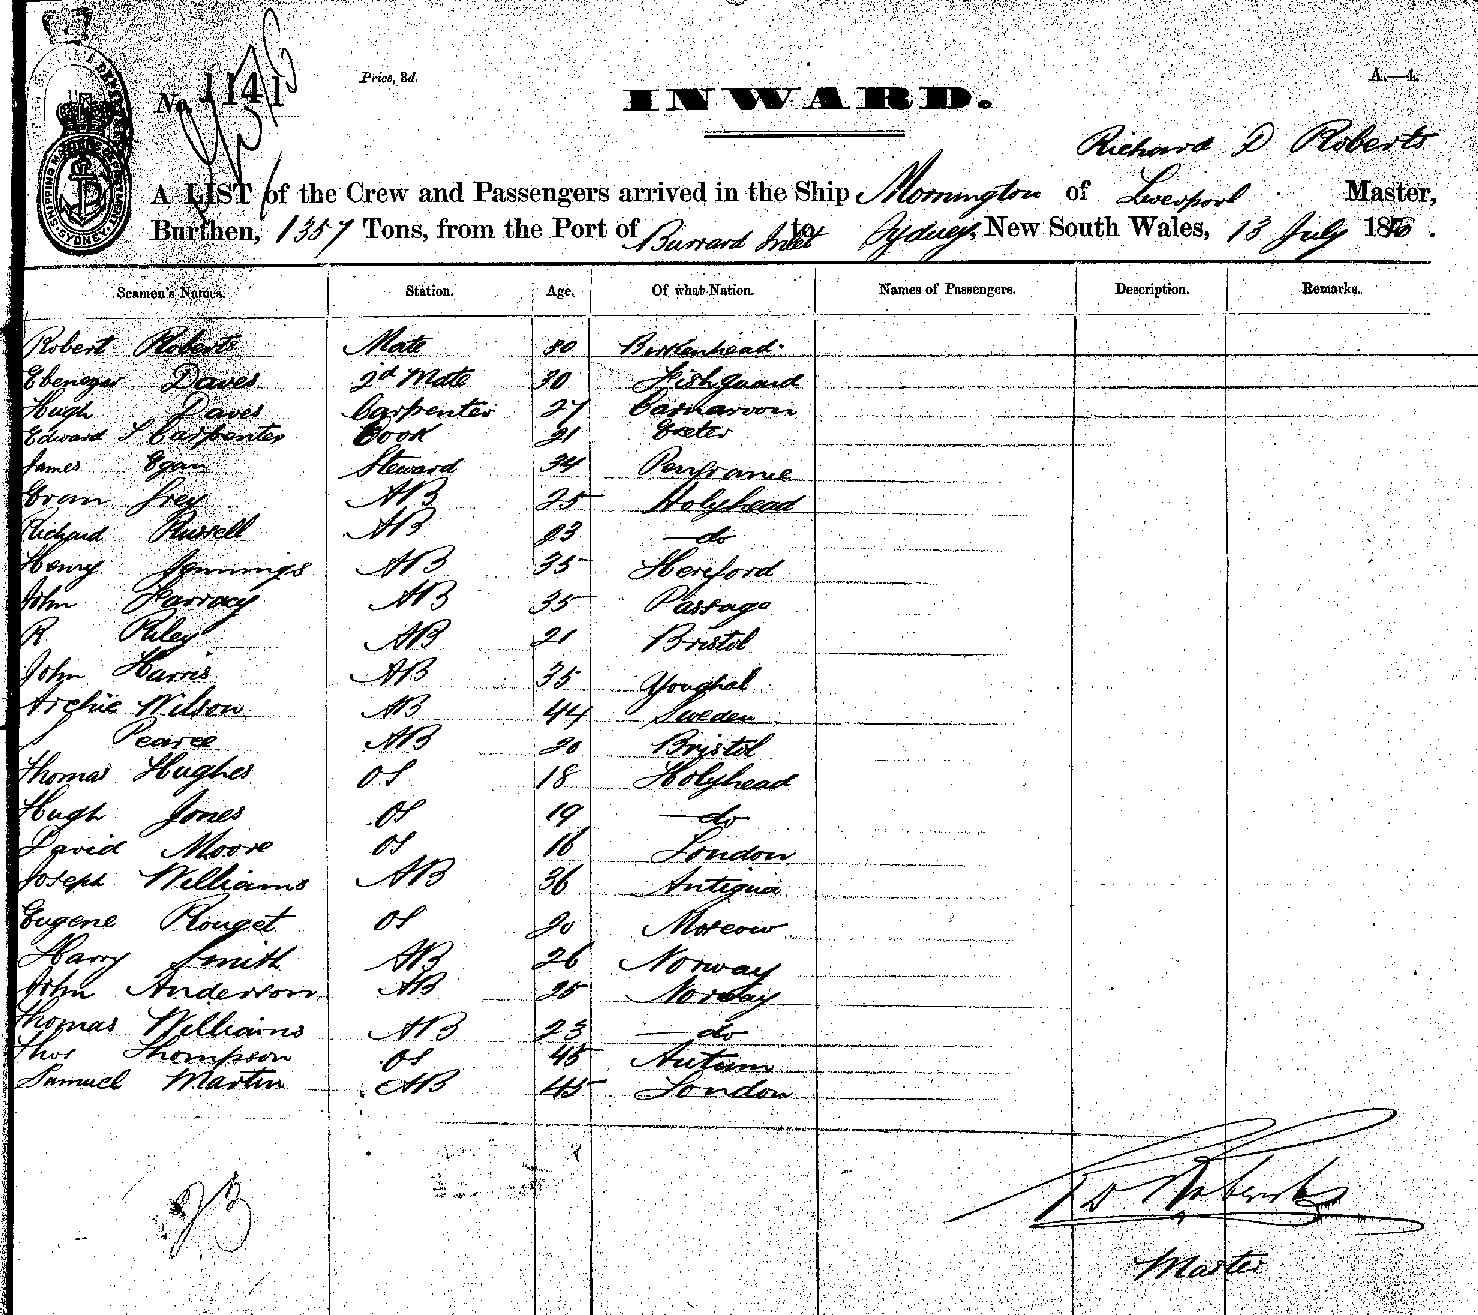 No 1141
Price, 3d.
A.—4.
INWARD.
Richard D Roberts
A LIST of the Crew and Passengers arrived in the Ship Mornington of Liverpool Master,
Burthen, 1357 Tons, from the Port of Burrard Inlet to Sydney, New South Wales, 13 July 18
Seamen's Names. Station. Age. Of what Nation. Names of Passengers. Description. Remarks.
Robert Roberts Mate Birkenhead
Ebenezer Daves 2d Mate 30 Fishguard
Hugh Daves Carpenter 27 Carnarvon
Edward S Carpenter Cook 21 Exeter
James Egan Steward 34
Evan Grey AB 25 Holyhead
Richard Russell AB 23 do
Henry Jennings AB 35 Hereford
John AB 35 Passage
R Riley AB 21 Bristol
John Harris AB 35 Youghal
Archie Wilson AB 44 Sweden
J Pearce AB 20 Bristol
Thomas Hughes OS 18 Holyhead
Hugh Jones OS 19 do
David Moore OS 16 London
Joseph Williams AB 36 Antigua
Eugene Rouget OS 20 Moscow
Harry Smith AB 26 Norway
John Anderson AB 25 Norway
Thomas Williams AB 23 do
Thos Thompson OS 45
Samuel Martin AB 45 London
23
R D Roberts
Master